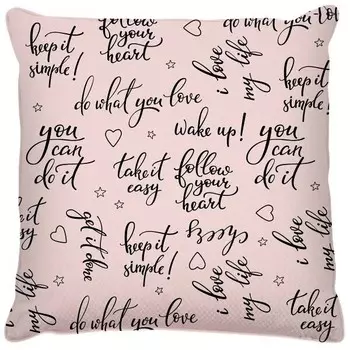 keep it
simple!
follow
your
heart
do what you love
i love
my life
keep it
simple!
do what you love
you
can
do it
wake up!
take it
easy
follow
your
heart
you
can
do it
get it done
keep it
simple!
i love
my life
i love
my life
you
can
do it
do what you love
take it
easy